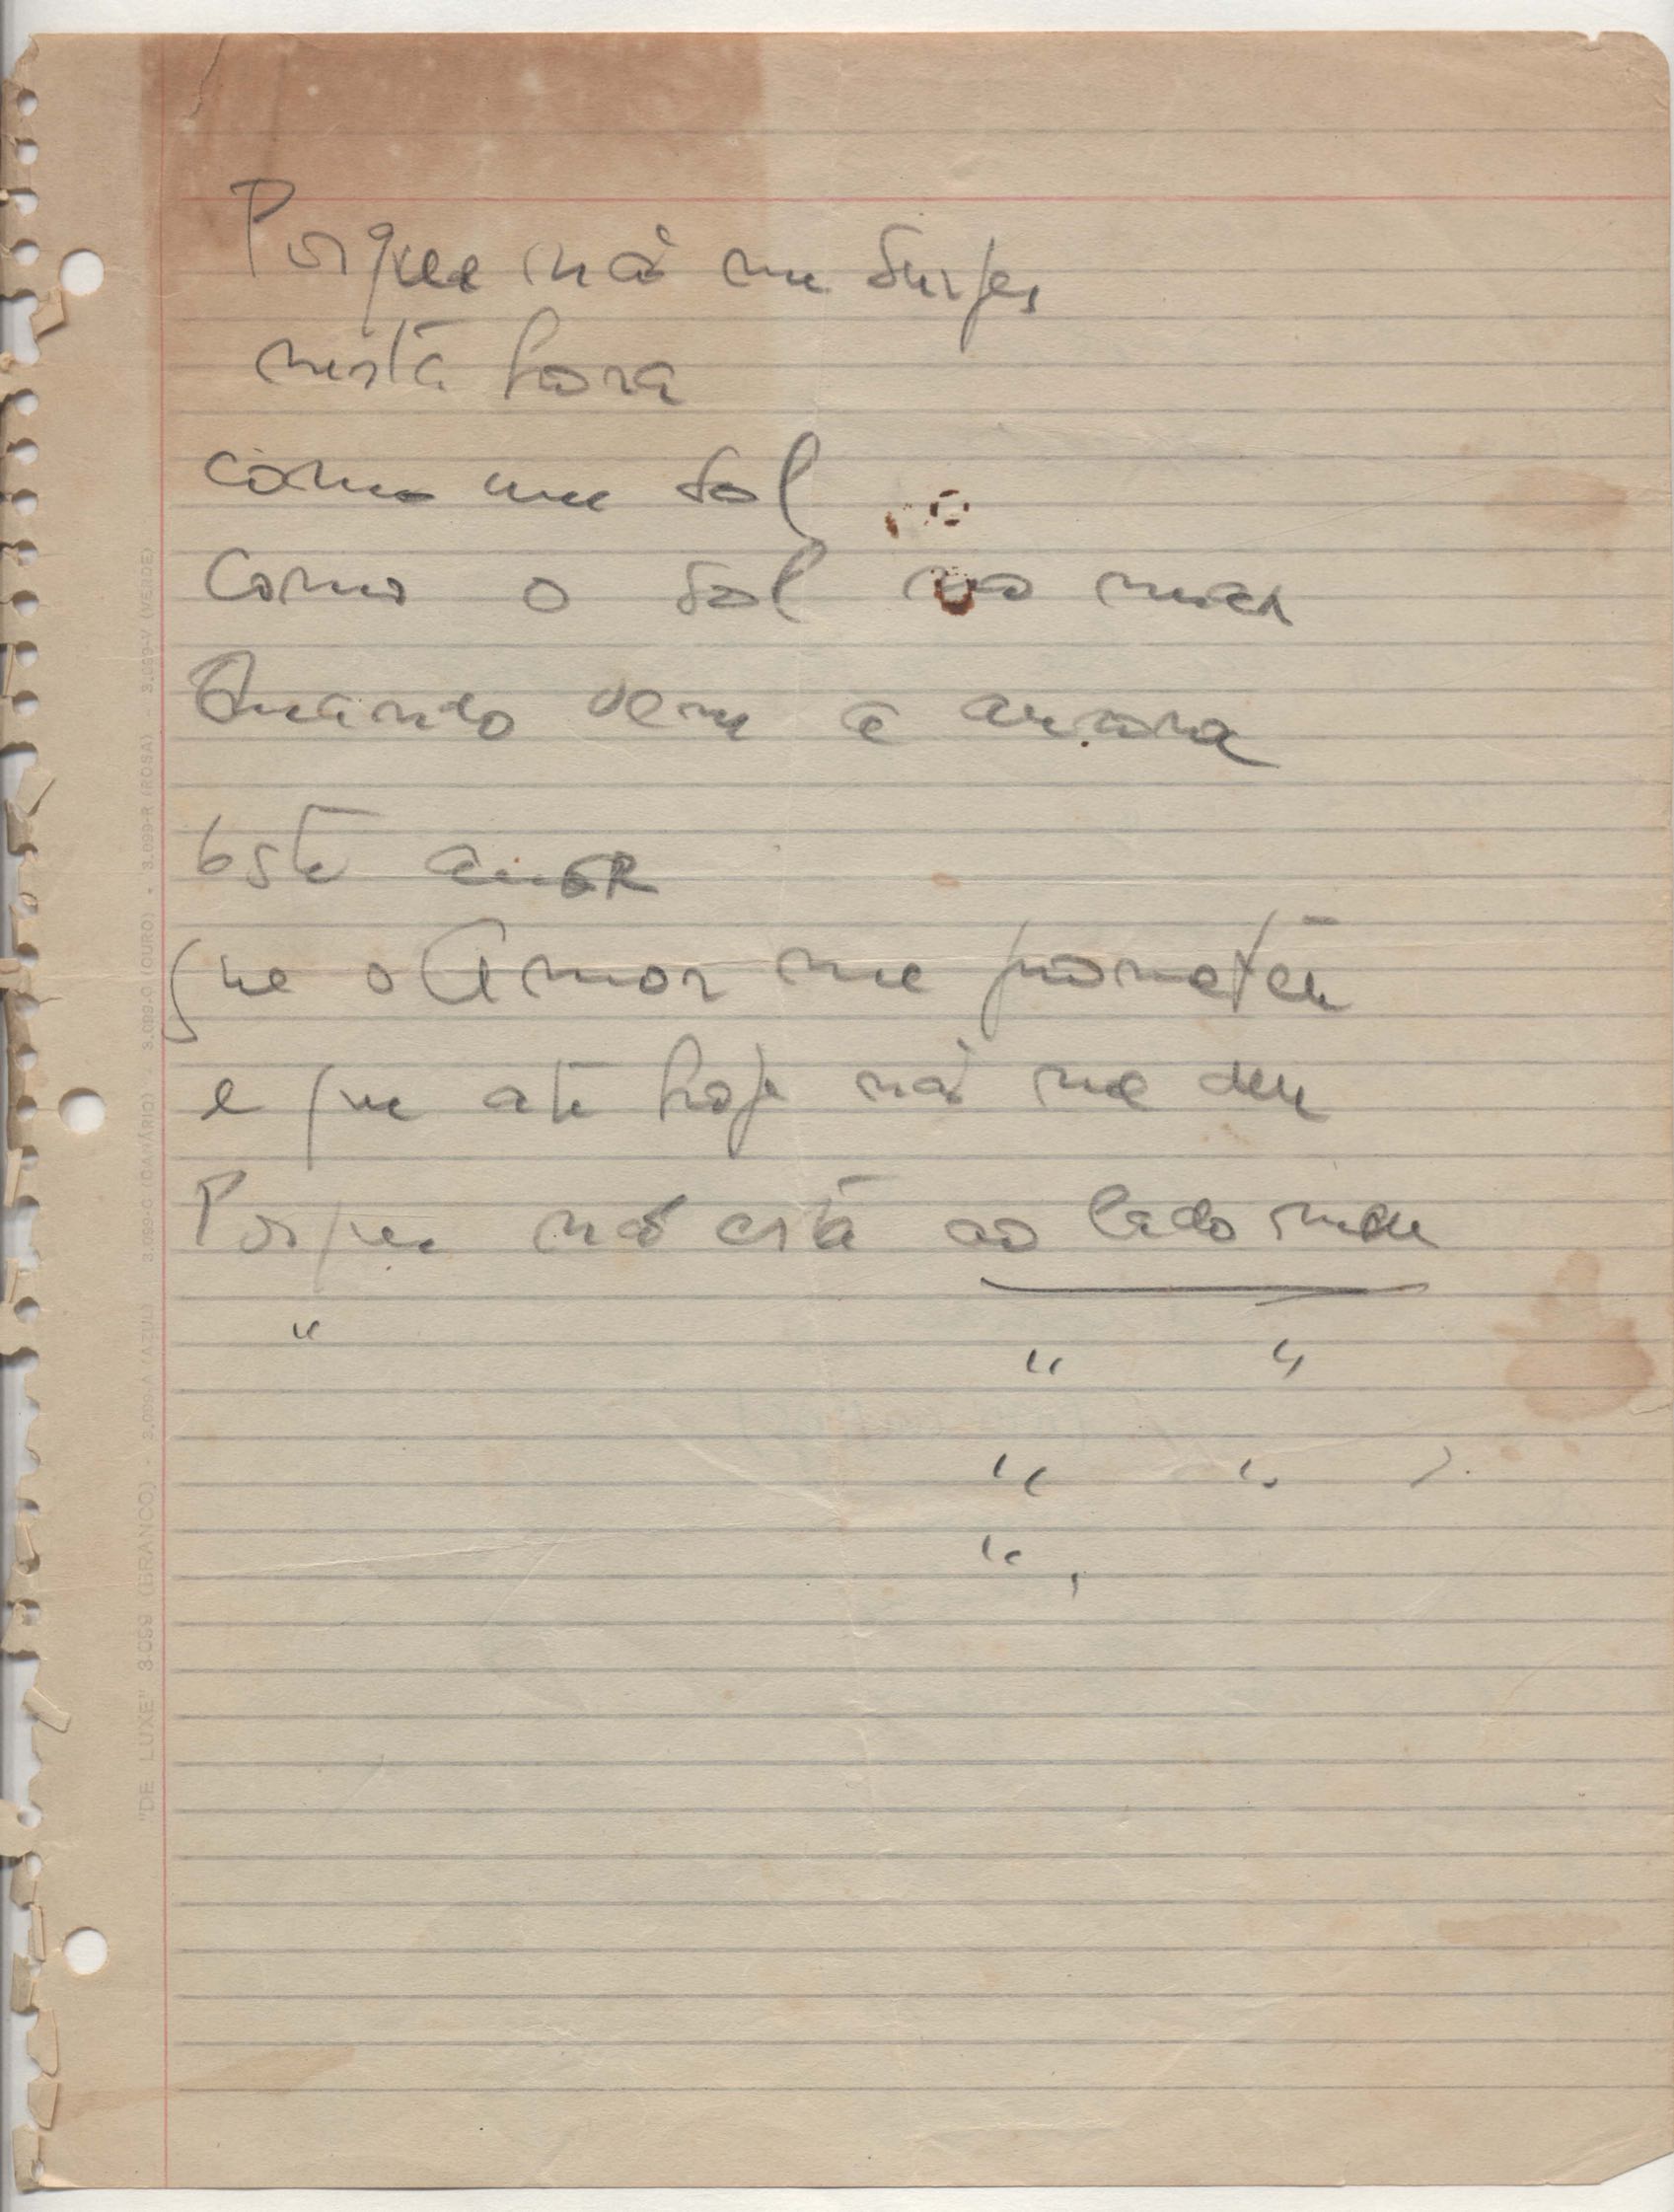 Porque não me surges
nesta hora
como um sol
como o sol no mar
Quando vem a aurora
Este amor
que o Amor me prometeu
e que até hoje não me deu
Porque não está ao lado meu
" " "
" "
"
"DE LUXE" 3.099 (BRANCO) - 3.099-A (AZUL) - 3.099-C (CANÁRIO) - 3.099-O (OURO) - 3.099-R (ROSA) - 3.099-V (VERDE)